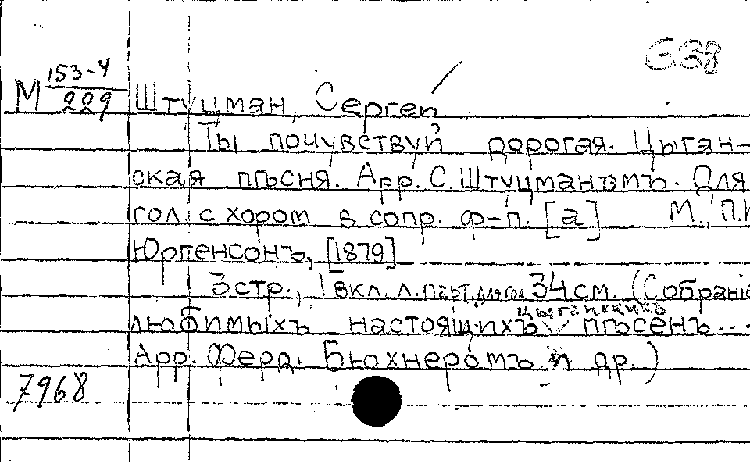 G38
М 153-4/229 Штуцман, Сергей
Ты почувствуй дорогая. Цыган-
ская пѣсня. Арр. С. Штуцманъмъ. Для
гол. с хором в сопр. ф-п. [а] М., П.И
Юргенсонъ, [1879]
3 стр., 1 вкл. л. 34 см. (Собраніе
любимыхъ настоящихъ цыганскихъ пѣсенъ...
Арр. Ферд. Бюхнеромъ и др.)
7968